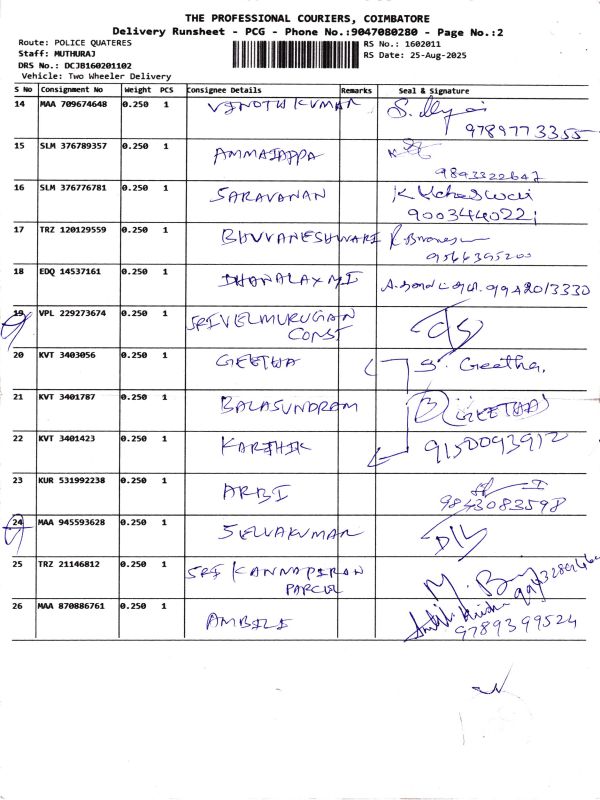 THE PROFESSIONAL COURIERS, COIMBATORE
Delivery Runsheet - PCG - Phone No.:9047080280 - Page No.:2
Route: POLICE QUATERES RS No.: 1602011
Staff: MUTHURAJ RS Date: 25-Aug-2025
DRS No.: DCJB160201102
Vehicle: Two Wheeler Delivery
S No Consignment No Weight PCS Consignee Details Remarks Seal & Signature
14 MAA 709674648 0.250 1 VINOTH KUMAR
9789773355
15 SLM 376789357 0.250 1 AMMAIAPPA
9893322647
16 SLM 376776781 0.250 1 SARAVANAN
9003440221
17 TRZ 120129559 0.250 1 BHUVANESHWARI
9566395200
18 EDQ 14537161 0.250 1 DHANALAXMI 9942013330
19 VPL 229273674 0.250 1 SRIVELMURUGAN
CONST
20 KVT 3403056 0.250 1 GEETHA S. Geetha,
21 KVT 3401787 0.250 1 BALASUNDRAM (GEETHA)
22 KVT 3401423 0.250 1 KARTHIK 9150093912
23 KUR 531992238 0.250 1 ARBI
9843083598
24 MAA 945593628 0.250 1 SELVAKUMAR D/L
25 TRZ 21146812 0.250 1 SRI KANNAPIRAN
PARCEL
26 MAA 870886761 0.250 1 AMBILI
9789399524